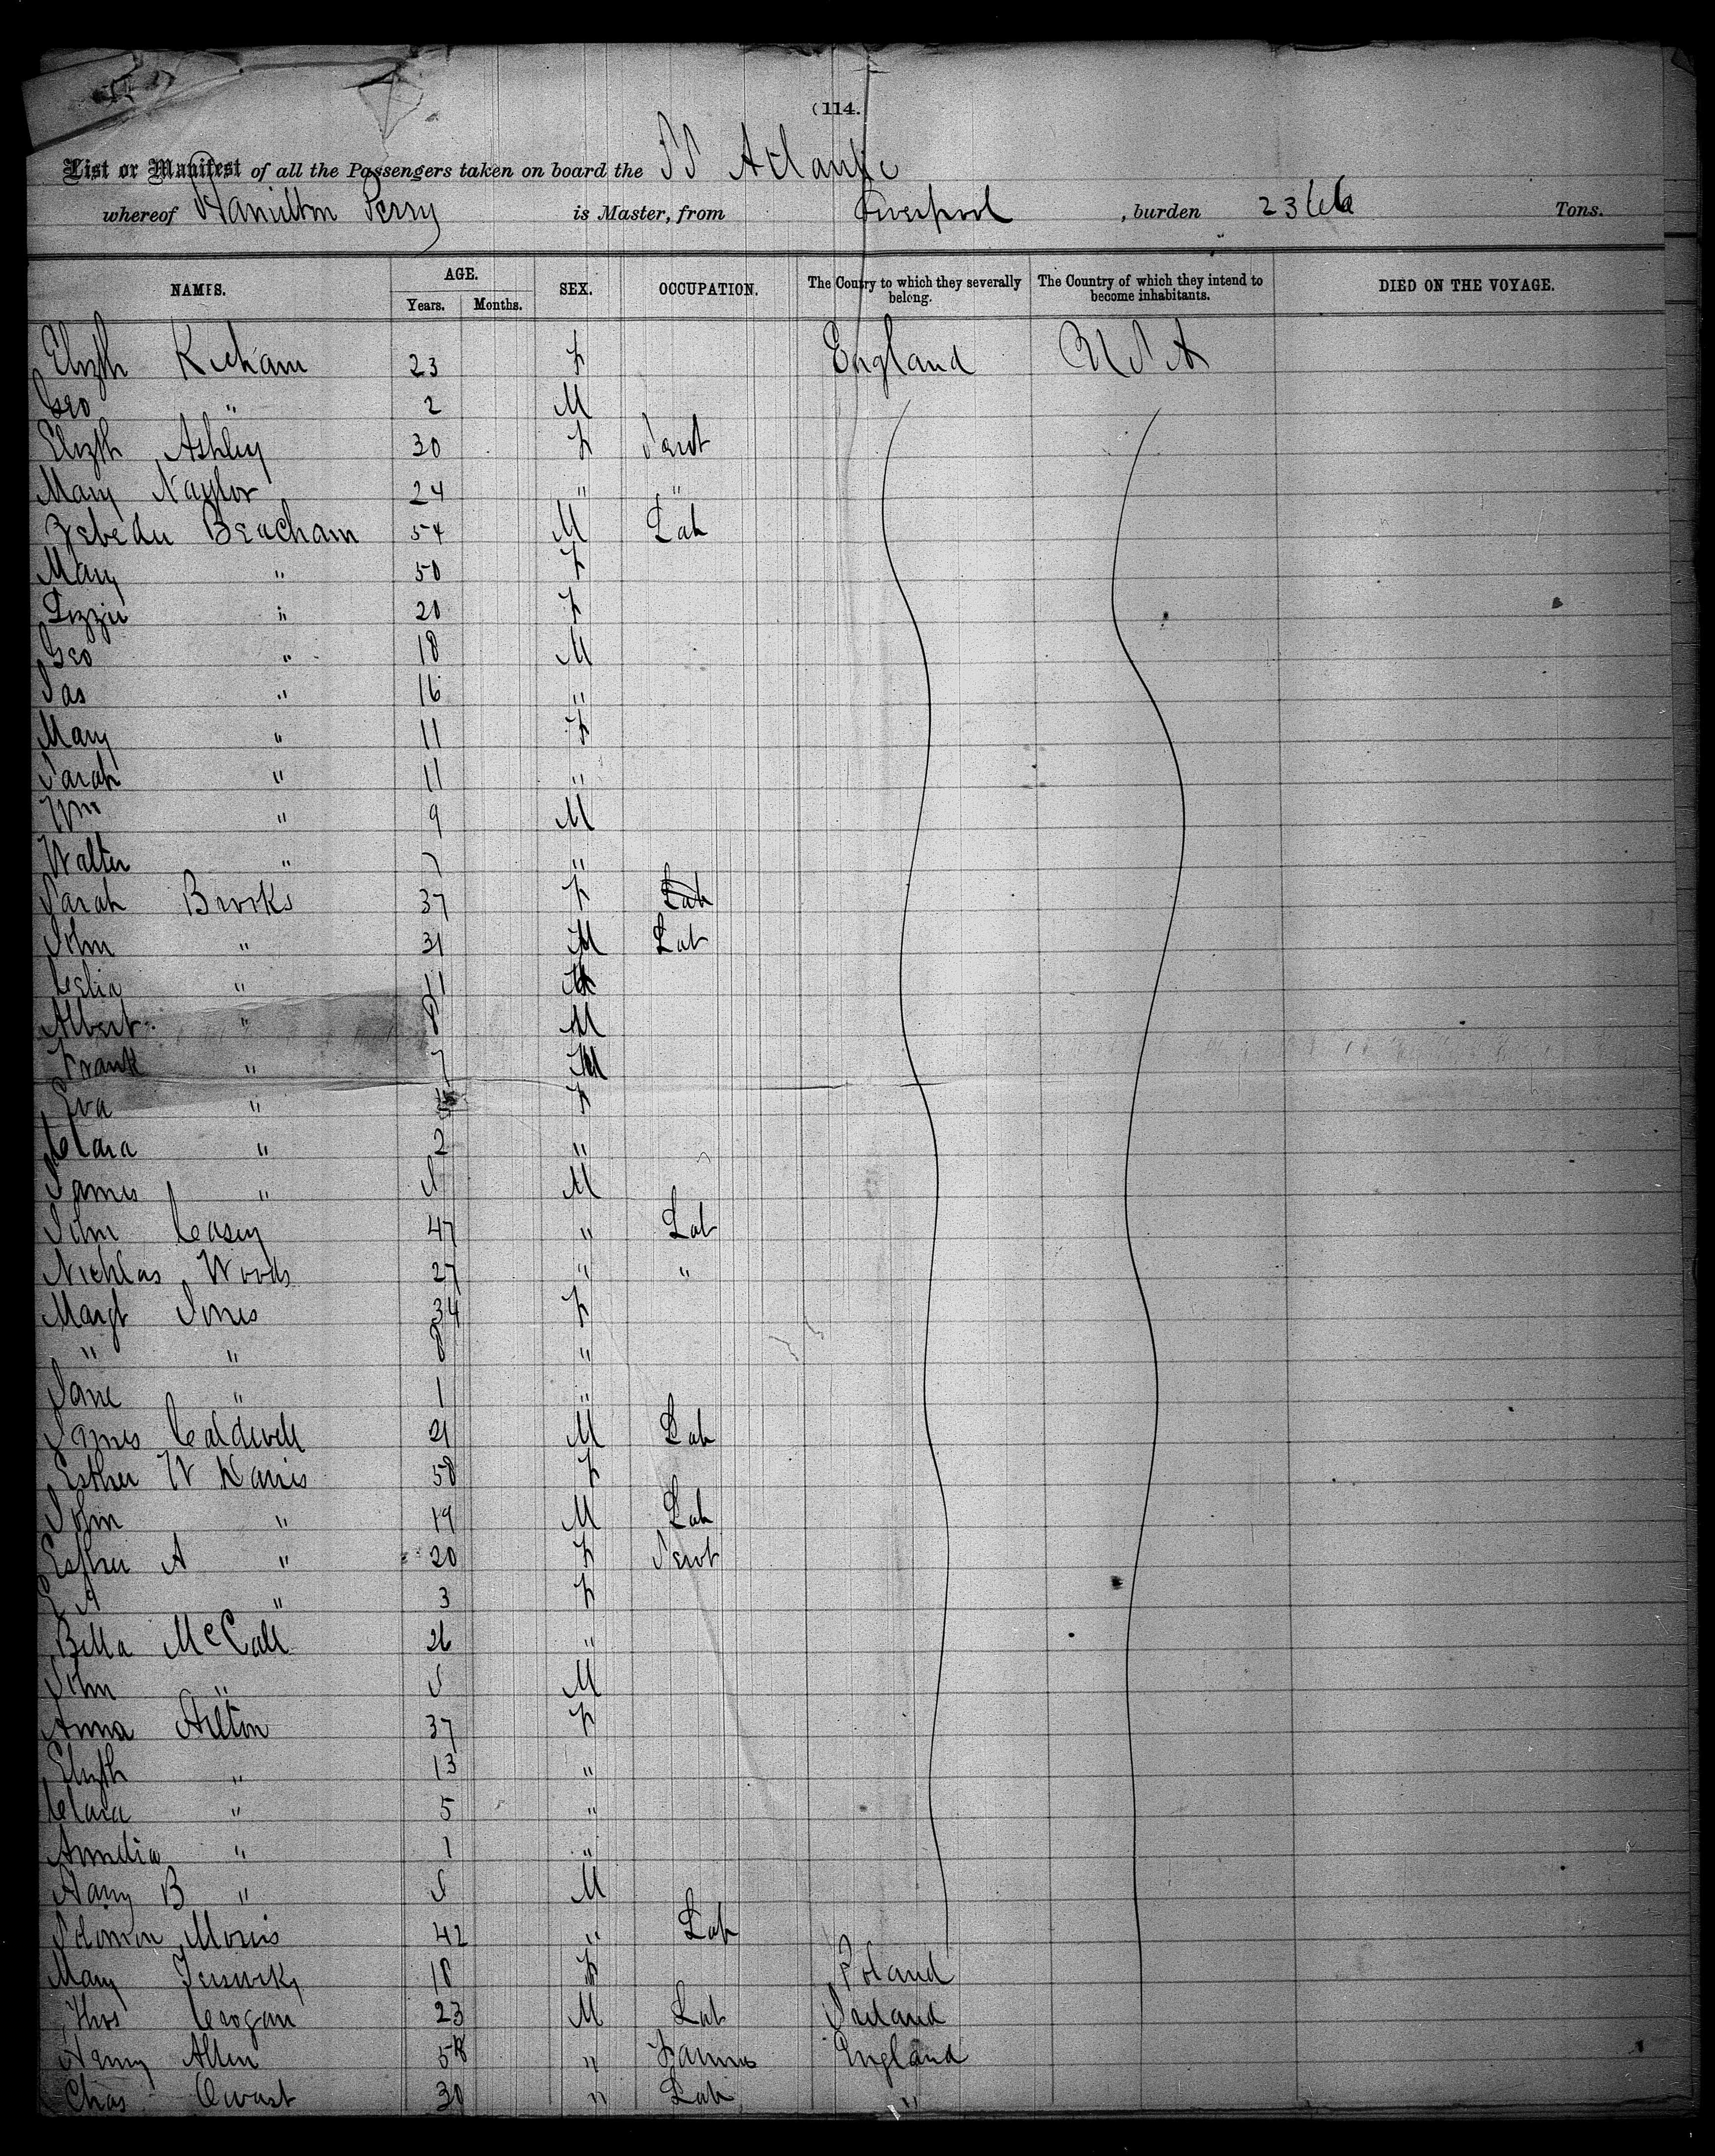 (114.
List or Manifest of all the Passengers taken on board the SS Atlantic
whereof Hamilton Perry is Master, from Liverpool , burden 2366 Tons.
NAMES. AGE. Years. Months. SEX. OCCUPATION. The Country to which they severally belong. The Country of which they intend to become inhabitants. DIED ON THE VOYAGE.
Elizth 23 F England U S A
Geo " 2 M
Elizth Ashley 30 F Servt
Mary Naylor 24 " "
Zebedee Beacham 54 M Lab
Mary " 50 F
Lizzie " 20 F
Geo " 18 M
Jas " 16 "
Mary " 11 F
Sarah " 11 "
Wm " 9 M
Walter " 7 "
Sarah Brooks 37 F Lab
John " 31 M Lab
" 11
Albert " 8 M
Frank " 7 M
Eva " F
Clara " 2 "
James " M
John Casey 47 " Lab
Nichlas Woods 27 " "
Margt Jones 34 F
" " 8 "
Jane " 1 "
James Caldwell 21 M Lab
Esther W Harris 58 F
John " 19 M Lab
Esther A " 20 F Servt
E A " 3 F
Bella McCall 26 "
John " M
Anna Hilton 37 F
Elizth " 13 "
Clara " 5 "
Amelia " 1 "
Harry B " M
Solomon Morris 42 " Lab
Mary 18 F Poland
Thos Crogan 23 M Lab Ireland
Henry Allen 58 " Farmer England
Chas 30 " Lab "